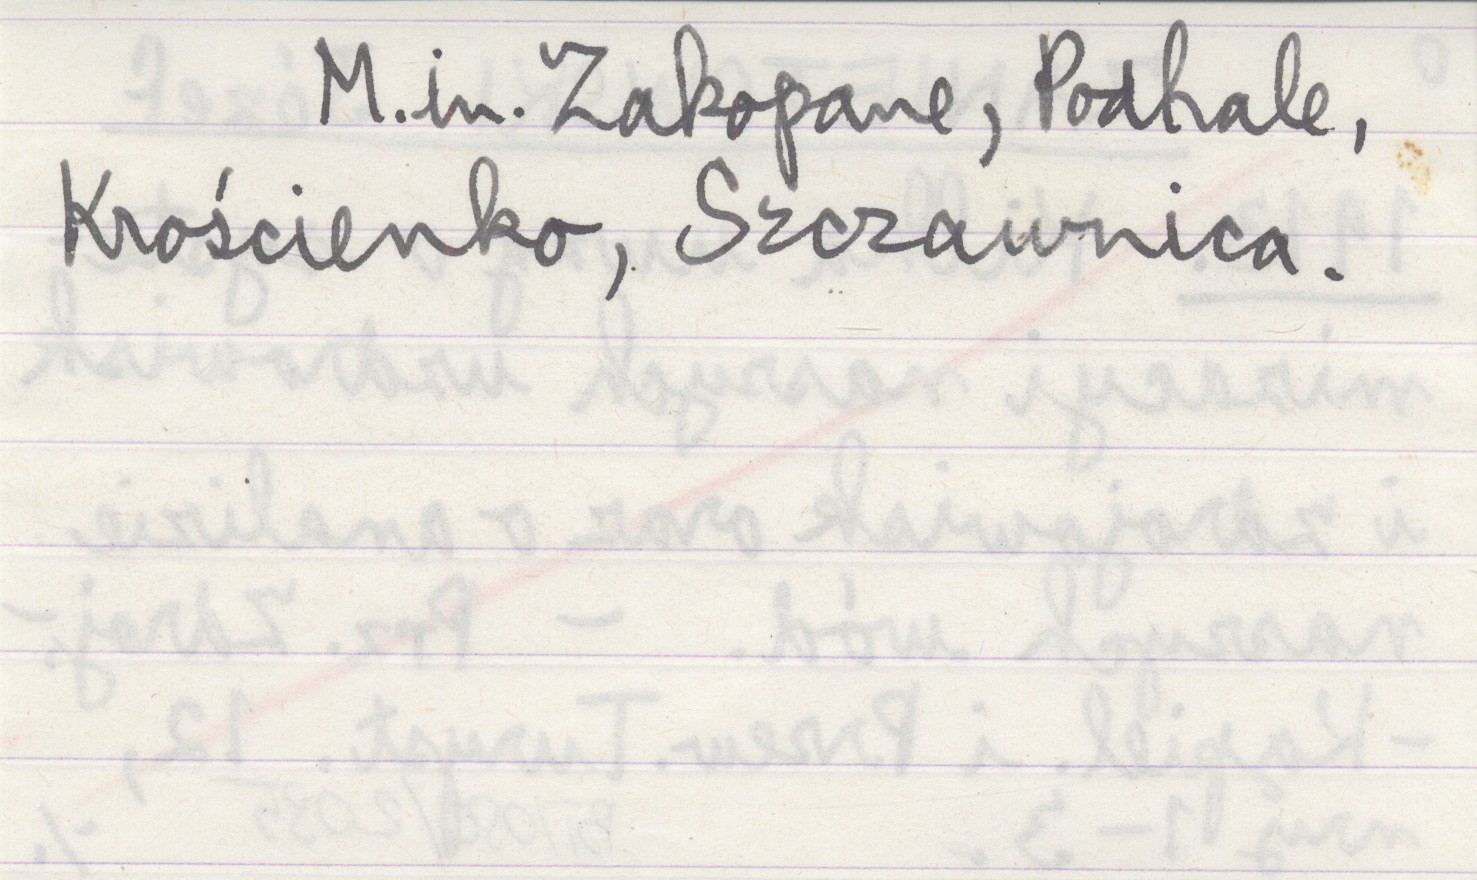 M.in. Zakopane, Podhale,
Krościenko, Szczawnica.